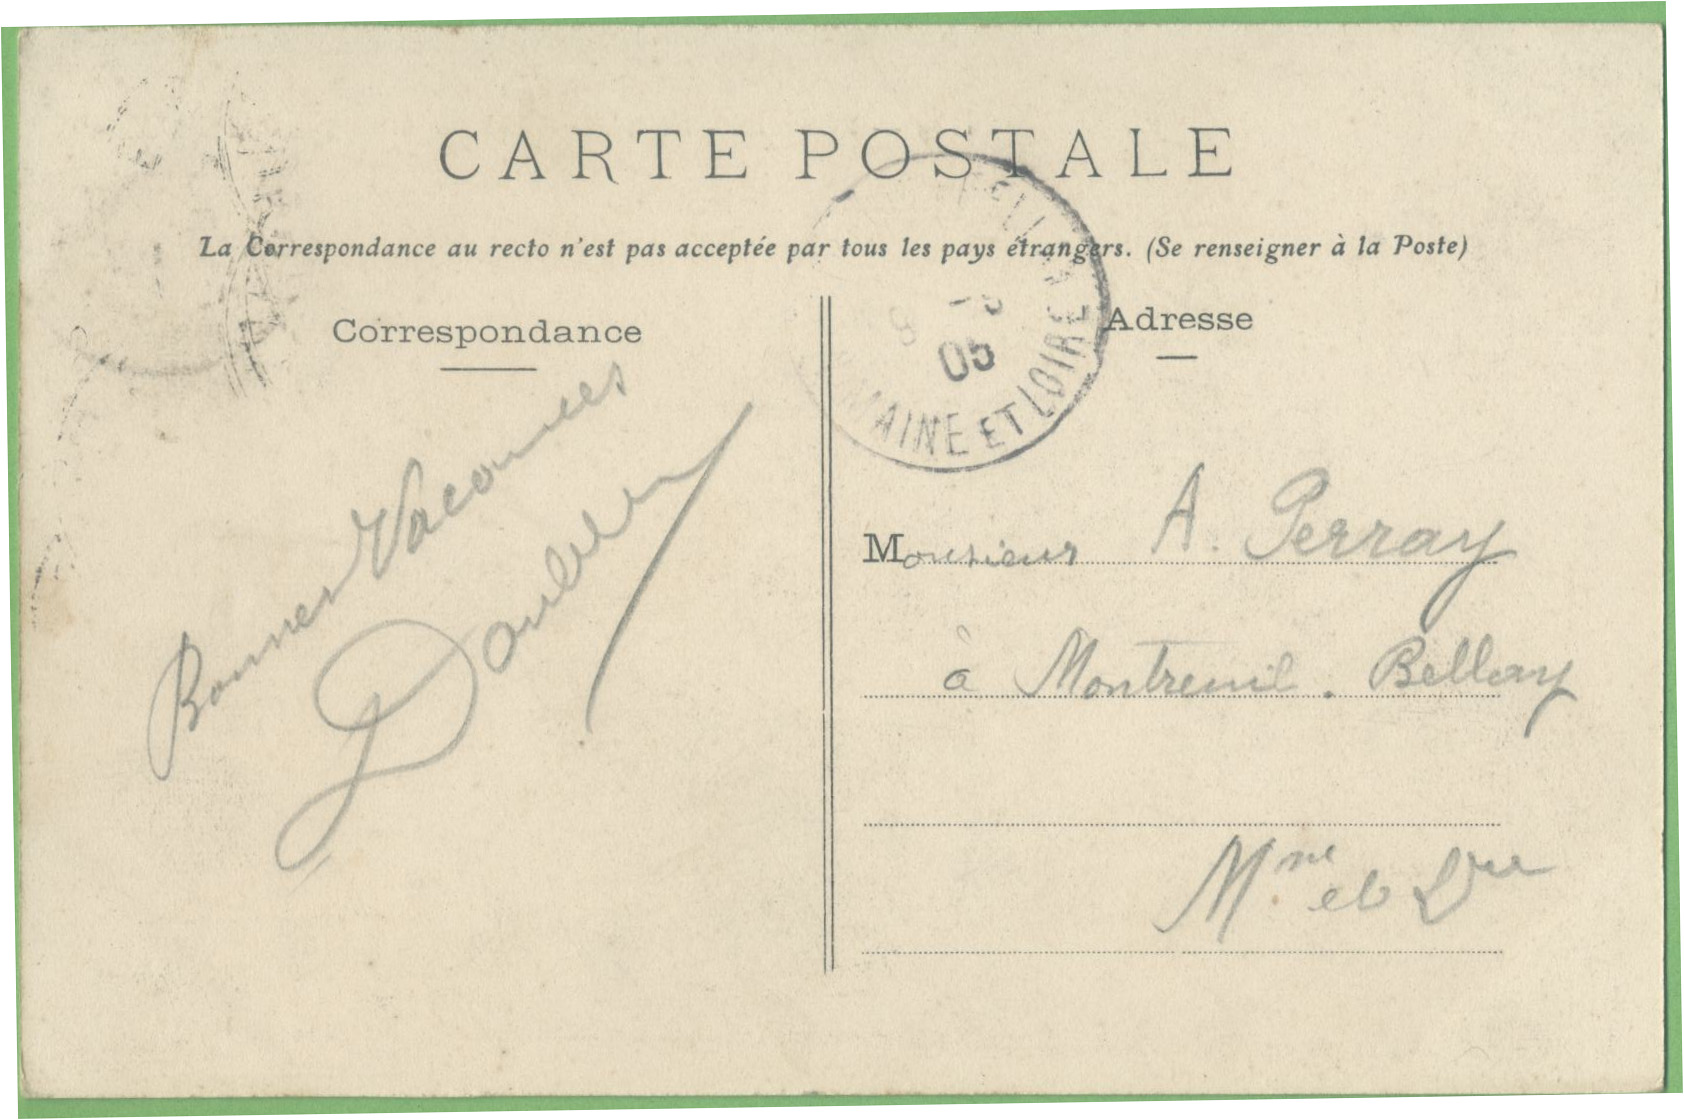 CARTE POSTALE
La Correspondance au recto n'est pas acceptée par tous les pays étrangers. (Se renseigner à la Poste)
Correspondance
Bonnes Vacances
Adresse
05
MAINE ET LOIRE
Monsieur A. Perray
à Montreuil. Bellay
M.ne et L.re